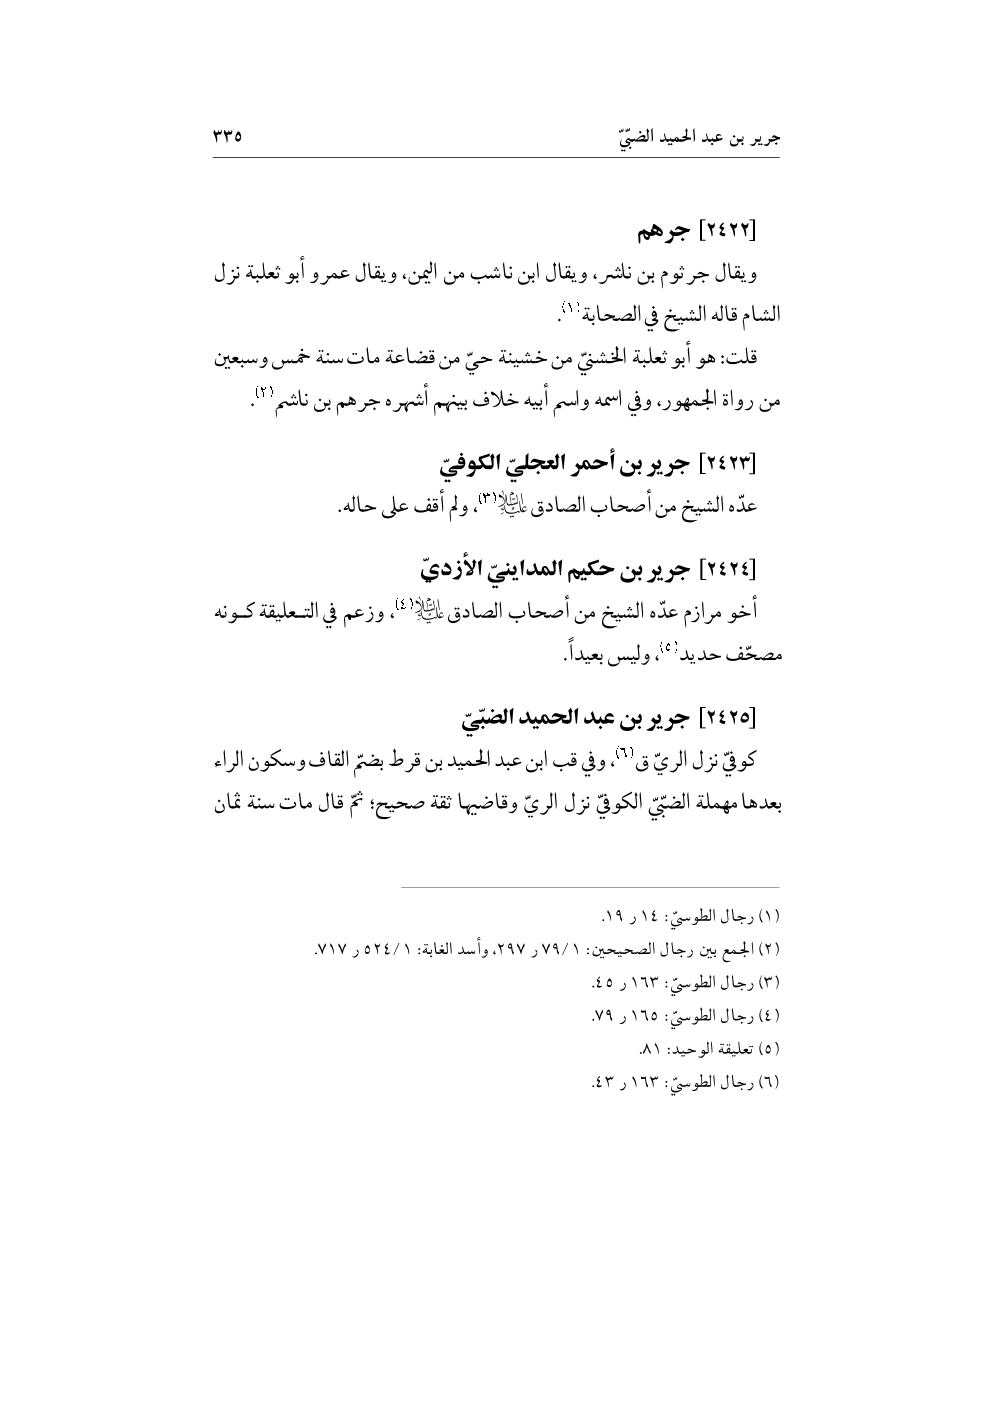 جرير بن عبد الحميد الضبّيّ ٣٣٥
[٢٤٢٢] جرهم
ويقال جرثوم بن ناشر، ويقال ابن ناشب من اليمن، ويقال عمرو أبو ثعلبة نزل
الشام قاله الشيخ في الصحابة(١).
قلت: هو أبو ثعلبة الخشنيّ من خشينة حيّ من قضاعة مات سنة خمس وسبعين
من رواة الجمهور، وفي اسمه واسم أبيه خلاف بينهم أشهره جرهم بن ناشم(٢).
[٢٤٢٣] جرير بن أحمر العجليّ الكوفيّ
عدّه الشيخ من أصحاب الصادق عليه السلام(٣)، ولم أقف على حاله.
[٢٤٢٤] جرير بن حكيم المداينيّ الأزديّ
أخو مرازم عدّه الشيخ من أصحاب الصادق عليه السلام(٤)، وزعم في التـعليقة كـونه
مصحّف حديد(٥)، وليس بعيداً.
[٢٤٢٥] جرير بن عبد الحميد الضبّيّ
كوفيّ نزل الريّ ق(٦)، وفي قب ابن عبد الحميد بن قرط بضمّ القاف وسكون الراء
بعدها مهملة الضبّيّ الكوفيّ نزل الريّ وقاضيها ثقة صحيح؛ ثمّ قال مات سنة ثمان
(١) رجال الطوسيّ: ١٤ ر ١٩.
(٢) الجمع بين رجال الصحيحين: ٧٩/١ ر ٢٩٧، وأسد الغابة: ٥٢٤/١ ر ٧١٧.
(٣) رجال الطوسيّ: ١٦٣ ر ٤٥.
(٤) رجال الطوسيّ: ١٦٥ ر ٧٩.
(٥) تعليقة الوحيد: ٨١.
(٦) رجال الطوسيّ: ١٦٣ ر ٤٣.